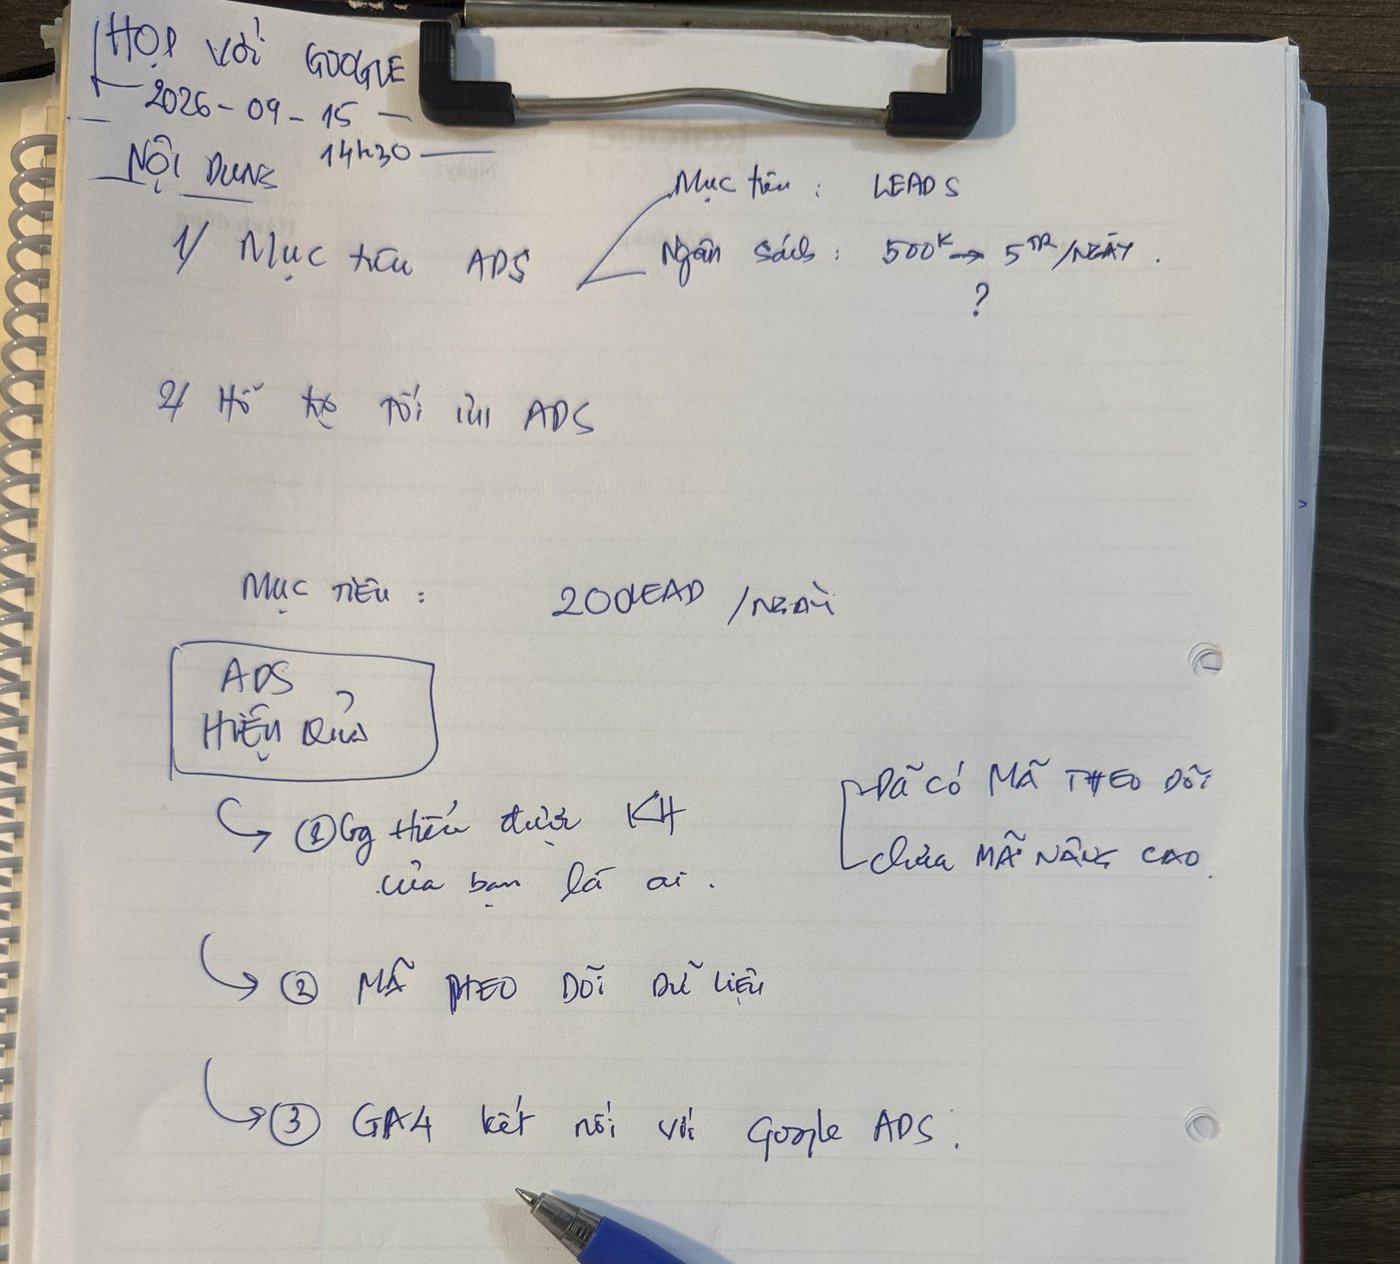 HỌP với GOOGLE
2026-09-15
14h30
NỘI DUNG
1/ Mục tiêu ADS
Mục tiêu : LEADS
Ngân sách : 500K → 5TR/NGÀY .
?
2/ Hỗ trợ TỐI ưu ADS
MỤC TIÊU : 200LEAD /NGÀY
ADS
HIỆU QUẢ
① Gg hiểu được KH
của bạn là ai .
Đã có MÃ THEO DÕI
chưa MÃ NÂNG CAO .
② MÃ THEO DÕI DỮ LIỆU
③ GA4 kết nối với Google ADS .